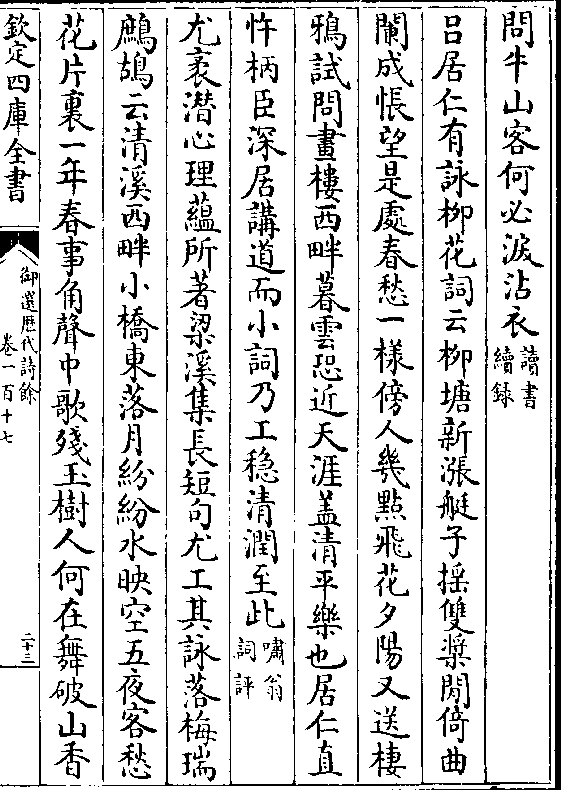 問牛山客何必淚沾衣讀書續録
呂居仁有詠柳花詞云柳塘新漲艇子揺雙槳閒倚曲
闌成悵望是處春愁一様傍人幾點飛花夕陽又送棲
鴉試問畫樓西畔暮雲恐近天涯盖清平樂也居仁直
忤柄臣深居講道而小詞乃工穏清潤至此嘯翁詞評
尤袤潜心理蘊所著梁溪集長短句尤工其詠落梅瑞
鷓鴣云清溪西畔小橋東落月紛紛水映空五夜客愁
花片裏一年春事角聲中歌殘玉樹人何在舞破山香
欽定四庫全書
御選歴代詩餘
卷一百十七
二十三